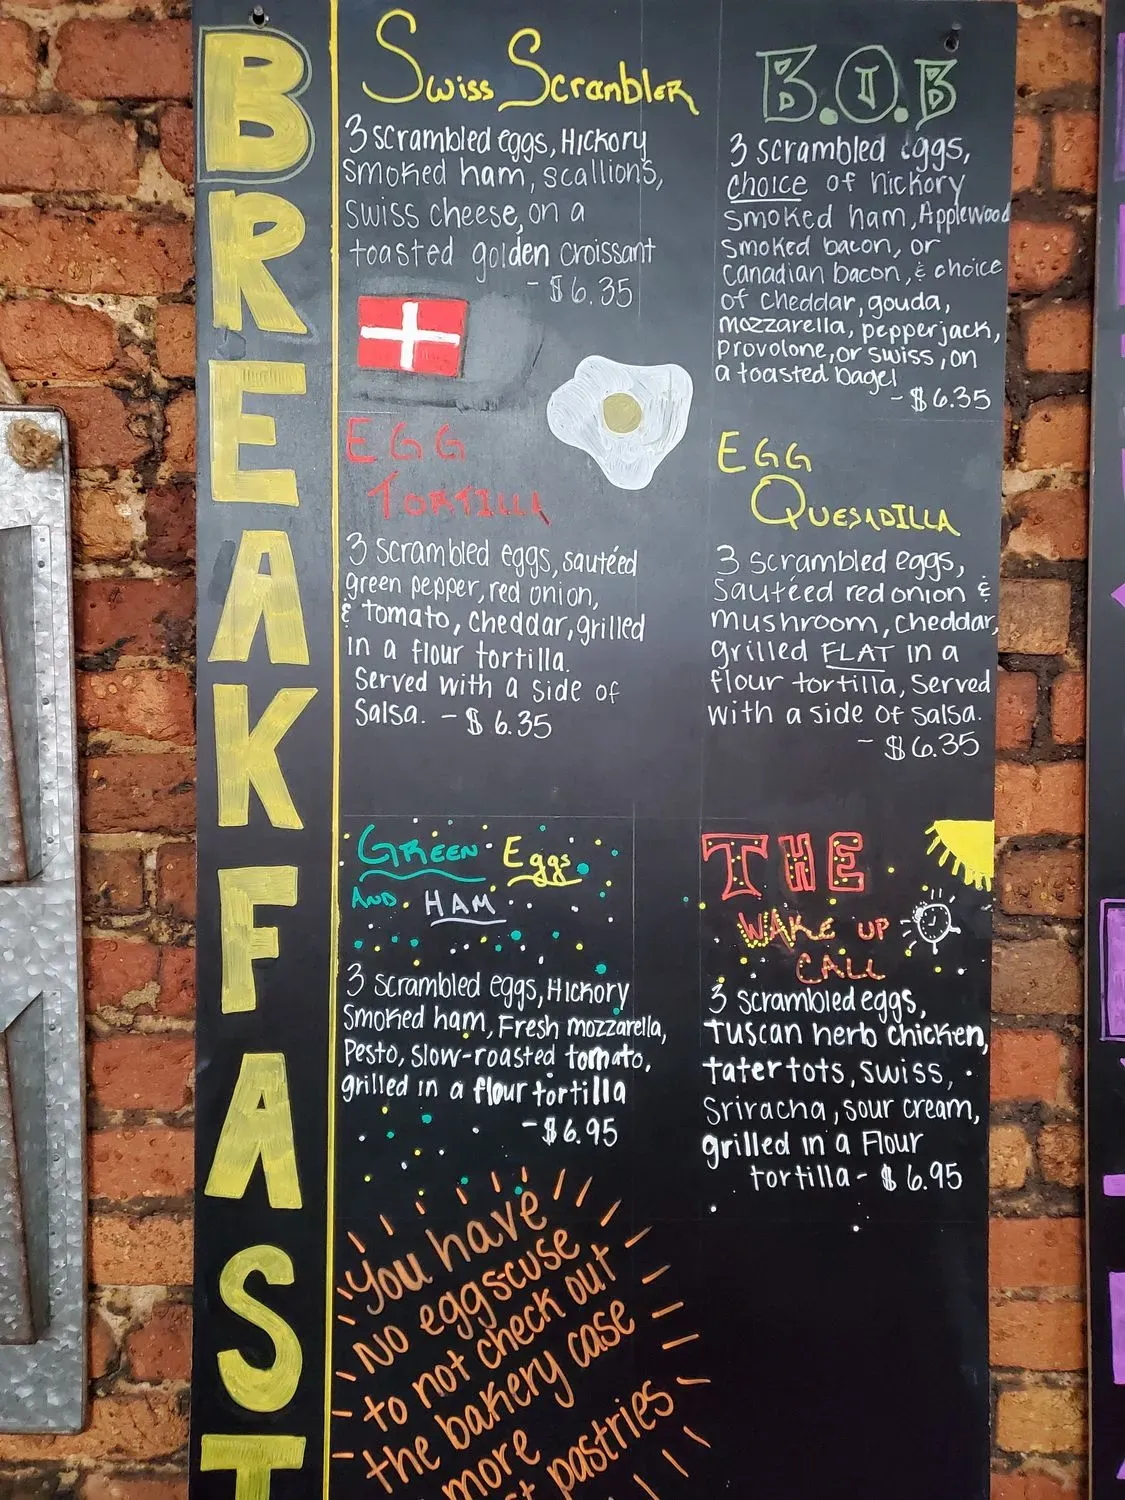 BREAKFAST
Swiss Scrambler
3 scrambled eggs, Hickory
smoked ham, scallions,
swiss cheese, on a
toasted golden croissant
- $6.35
B.O.B
3 scrambled eggs,
choice of hickory
smoked ham, Applewood
smoked bacon, or
Canadian bacon, & choice
of cheddar, gouda,
mozzarella, pepperjack,
provolone, or swiss, on
a toasted bagel
- $6.35
EGG
TORTILLA
3 scrambled eggs, sautéed
green pepper, red onion,
& tomato, cheddar, grilled
in a flour tortilla.
Served with a side of
Salsa. - $6.35
EGG
QUESADILLA
3 scrambled eggs,
sautéed red onion &
mushroom, cheddar,
grilled FLAT in a
flour tortilla, served
with a side of salsa.
- $6.35
GREEN Eggs
AND HAM
3 scrambled eggs, Hickory
smoked ham, Fresh mozzarella,
Pesto, slow-roasted tomato,
grilled in a flour tortilla
- $6.95
THE
WAKE UP
CALL
3 scrambled eggs,
Tuscan herb chicken,
tater tots, swiss,
Sriracha, sour cream,
grilled in a Flour
tortilla - $6.95
You have
No eggscuse
to not check out
the bakery case
more
pastries